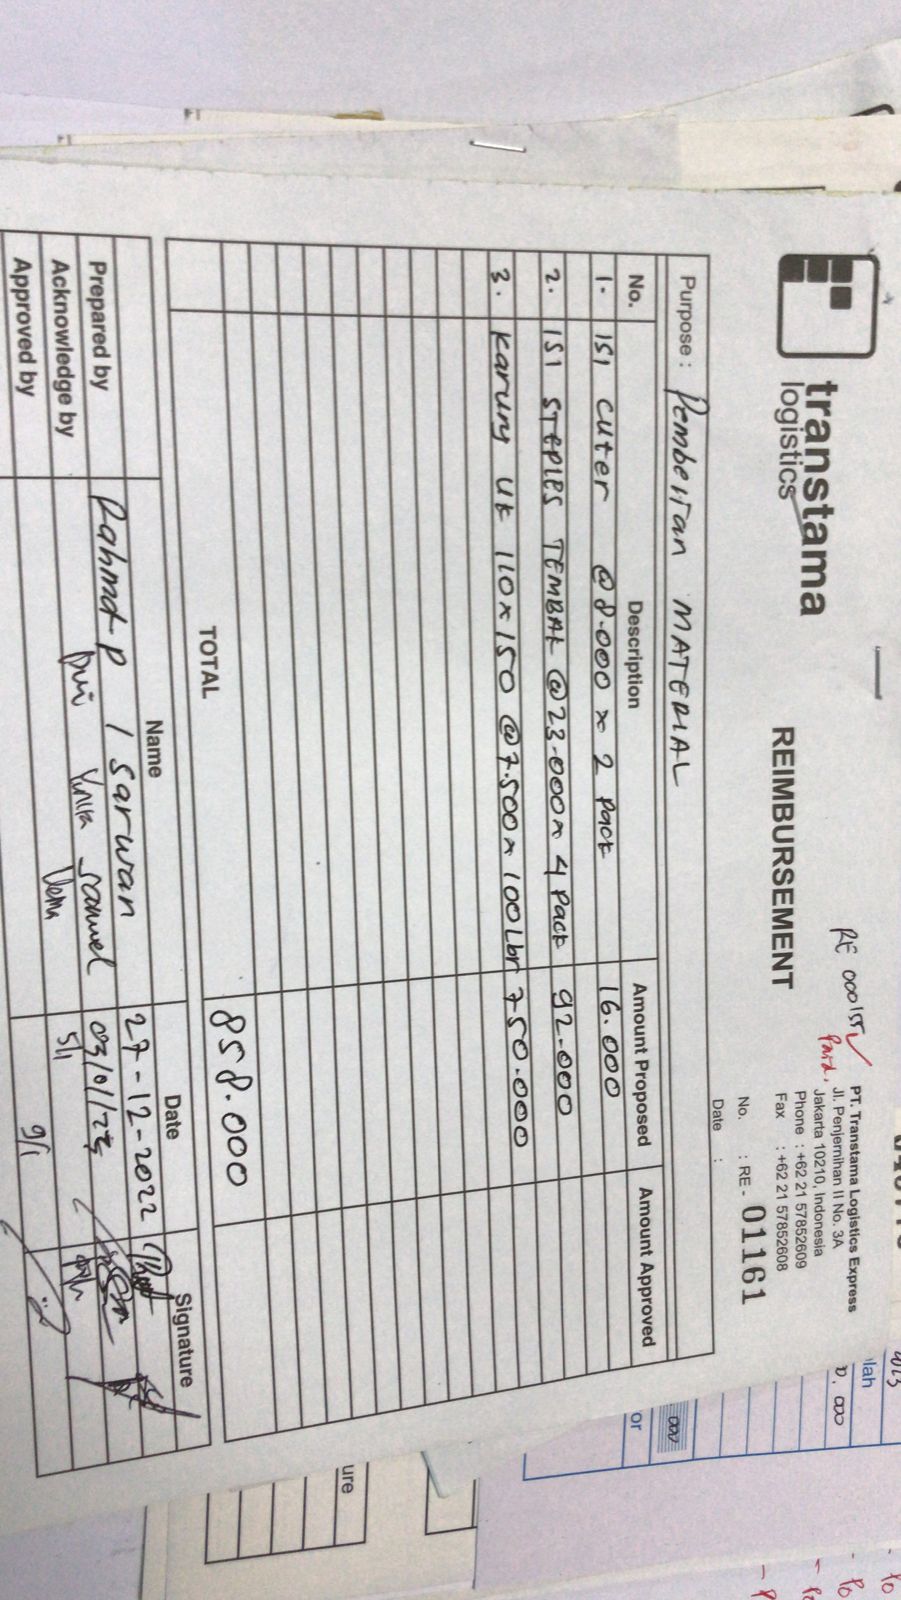 transtama
logistics
REIMBURSEMENT
RE 000155
Paid.
PT. Transtama Logistics Express
Jl. Penjernihan II No. 3A
Jakarta 10210, Indonesia
Phone : +62 21 57852609
Fax : +62 21 57852608
No. : RE - 01161
Date :
Purpose : Pembelian MATERIAL
No. Description Amount Proposed Amount Approved
1. ISI CUTER @8.000 x 2 Pack 16.000
2. ISI STEPLES TEMBAK @23.000 x 4 Pack 92.000
3. Karung UK 110x150 @7.500 x 100 Lbr 750.000
TOTAL 858.000
Name Date Signature
Prepared by Rahmat P / Sarwan 27-12-2022
Acknowledge by samuel 03/01/23
5/1
Approved by 9/1
ure
or
lah
000